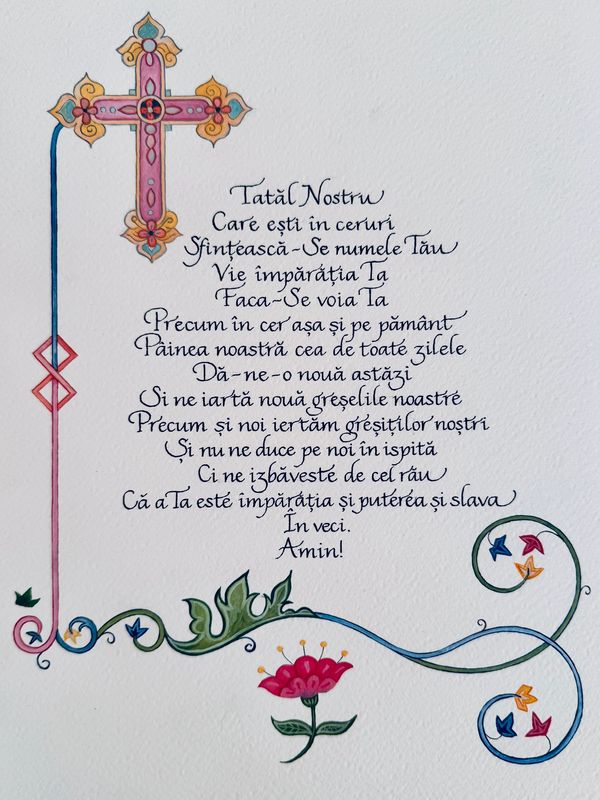 Tatăl Nostru
Care ești în ceruri
Sfințească-Se numele Tău
Vie împărăția Ta
Faca-Se voia Ta
Precum în cer așa și pe pământ
Pâinea noastră cea de toate zilele
Dă-ne-o nouă astăzi
Si ne iartă nouă greșelile noastre
Precum și noi iertăm greșiților noștri
Și nu ne duce pe noi în ispită
Ci ne izbăveste de cel rău
Că a Ta este împărăția și puterea și slava
În veci.
Amin!